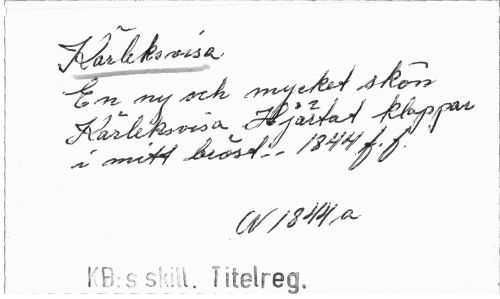 Kärleksvisa
En ny och mycket skön
Kärleksvisa Hjärtat klappar
i mitt bröst.. 1844 f.f.
N 1844 a
KB:s skill. Titelreg.